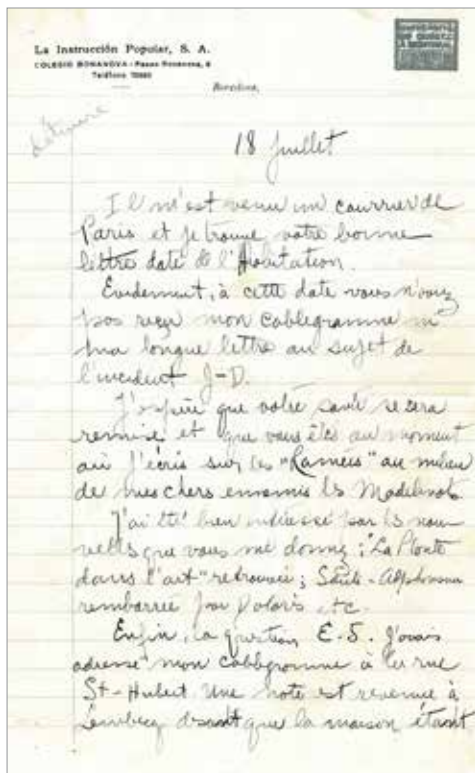 La Instrucción Popular, S. A.
COLEGIO BONANOVA - Paseo Bonanova, 8
Teléfono
Barcelona,
18 Juillet
Il m'est venu un courrier de
Paris et je trouve votre bonne
lettre daté de l'Habitation.
Evidemment, à cette date vous n'avez
pas reçu mon cablegramme ni
ma longue lettre au sujet de
l'incident J-D.
J'espère que votre santé se sera
remise et que vous êtes au moment
où j'écris sur les "Ramées" au milieu
de mes chers ennemis les Madelinots.
J'ai été bien intéressé par les nou-
velles que vous me donnez : "La Plante
dans l'art" retrouvée ; Sainte-Alphonse
rembarrée par Dolorès, etc.
Enfin, la question E-5. J'avais
adressé mon cablegramme à la rue
St-Hubert. Une note est revenue à
Lembecq disant que la maison étant